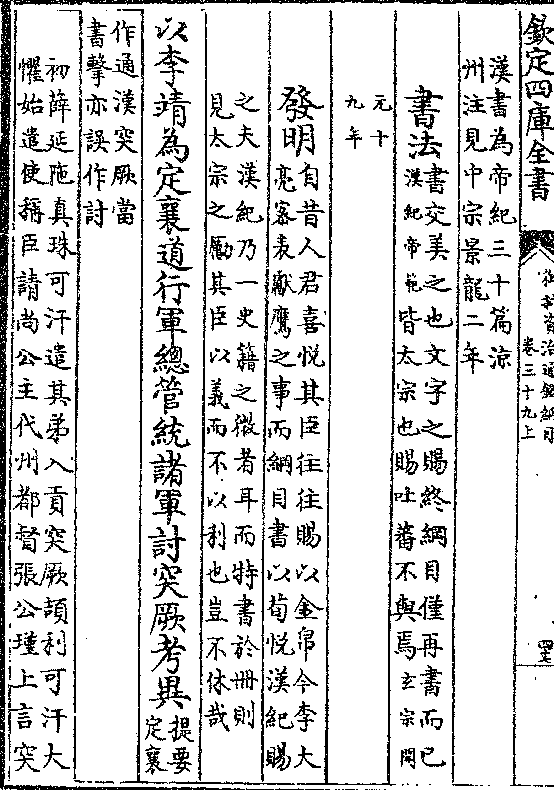 欽定四庫全書
御批資治通鑑綱目
卷三十九上
漢書為帝紀三十篇涼
州注見中宗景龍二年
書法
書交美之也文字之賜終綱目僅再書而已
漢紀帝範皆太宗也賜吐蕃不與焉玄宗開
元十
九年
發明
自昔人君喜悅其臣往往賜以金帛今李大
亮密表獻鷹之事而綱目書以荀悅漢紀賜
之夫漢紀乃一史籍之微者耳而特書於冊則
見太宗之勵其臣以義而不以利也豈不休哉
以李靖為定襄道行軍總管統諸軍討突厥考異
提要
定襄
作通漢突厥當
書擊亦誤作討
初薛延陁真珠可汗遣其弟入貢突厥頡利可汗大
懼始遣使稱臣請尚公主代州都督張公瑾上言突